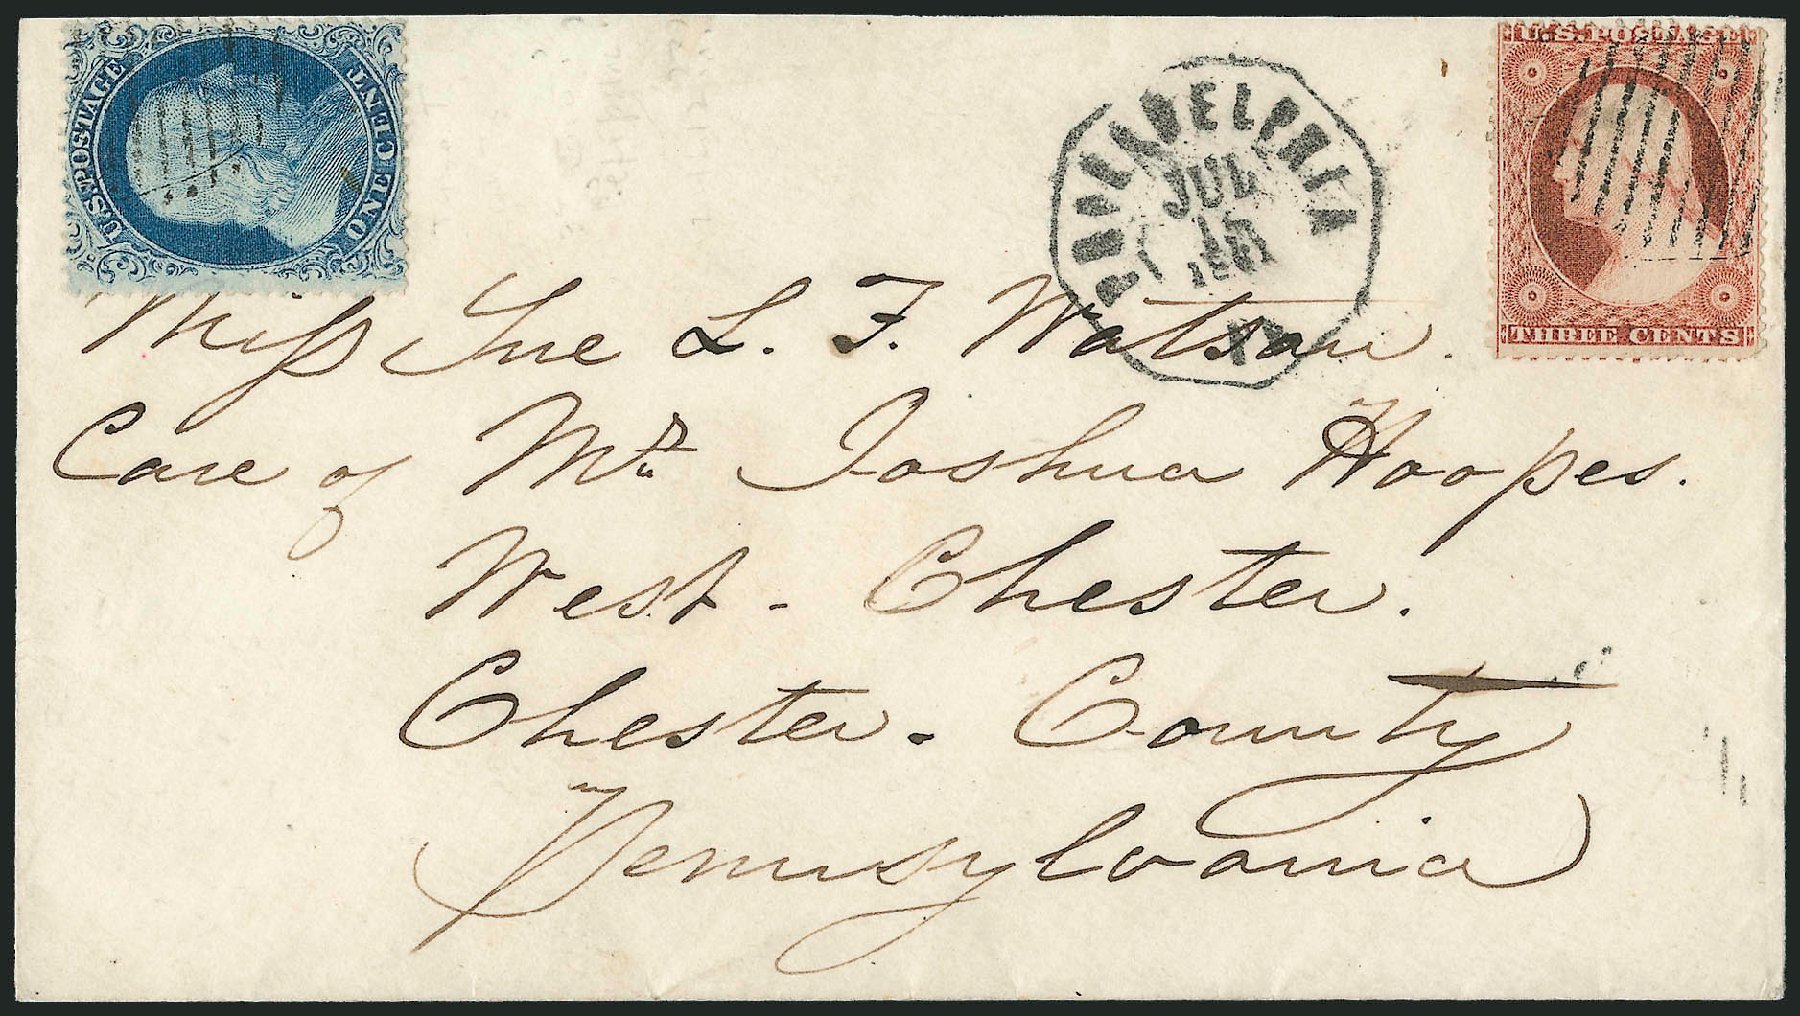 U.S. POSTAGE
ONE CENT
PHILADELPHIA
JUL
1861
PA
U.S. POSTAGE
THREE CENTS
Miss Sue L. F. Watson.
Care of Mr. Joshua Hoopes.
West-Chester.
Chester. County
Pennsylvania